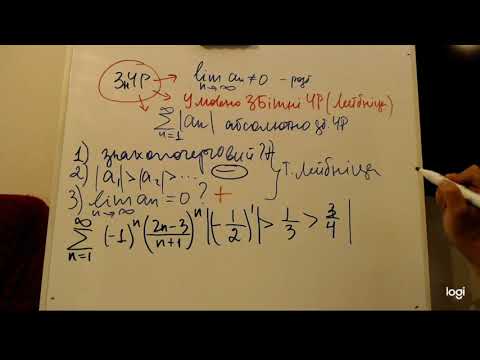 ЗнЧР → lim an ≠ 0 – розб
n→∞
Умовно збіжні ЧР (Лейбніца)
∑ n=1 ∞ |an| абсолютно зб. ЧР
1) знакопочерговий?
2) |a₁| > |a₂| > ... (—)
3) lim an = 0 ? +
n→∞
} Т. Лейбніца
∑ n=1 ∞ (-1)ⁿ ((2n-3)/(n+1))ⁿ |(-1/2)¹| > 1/3 > 3/4 |
logi